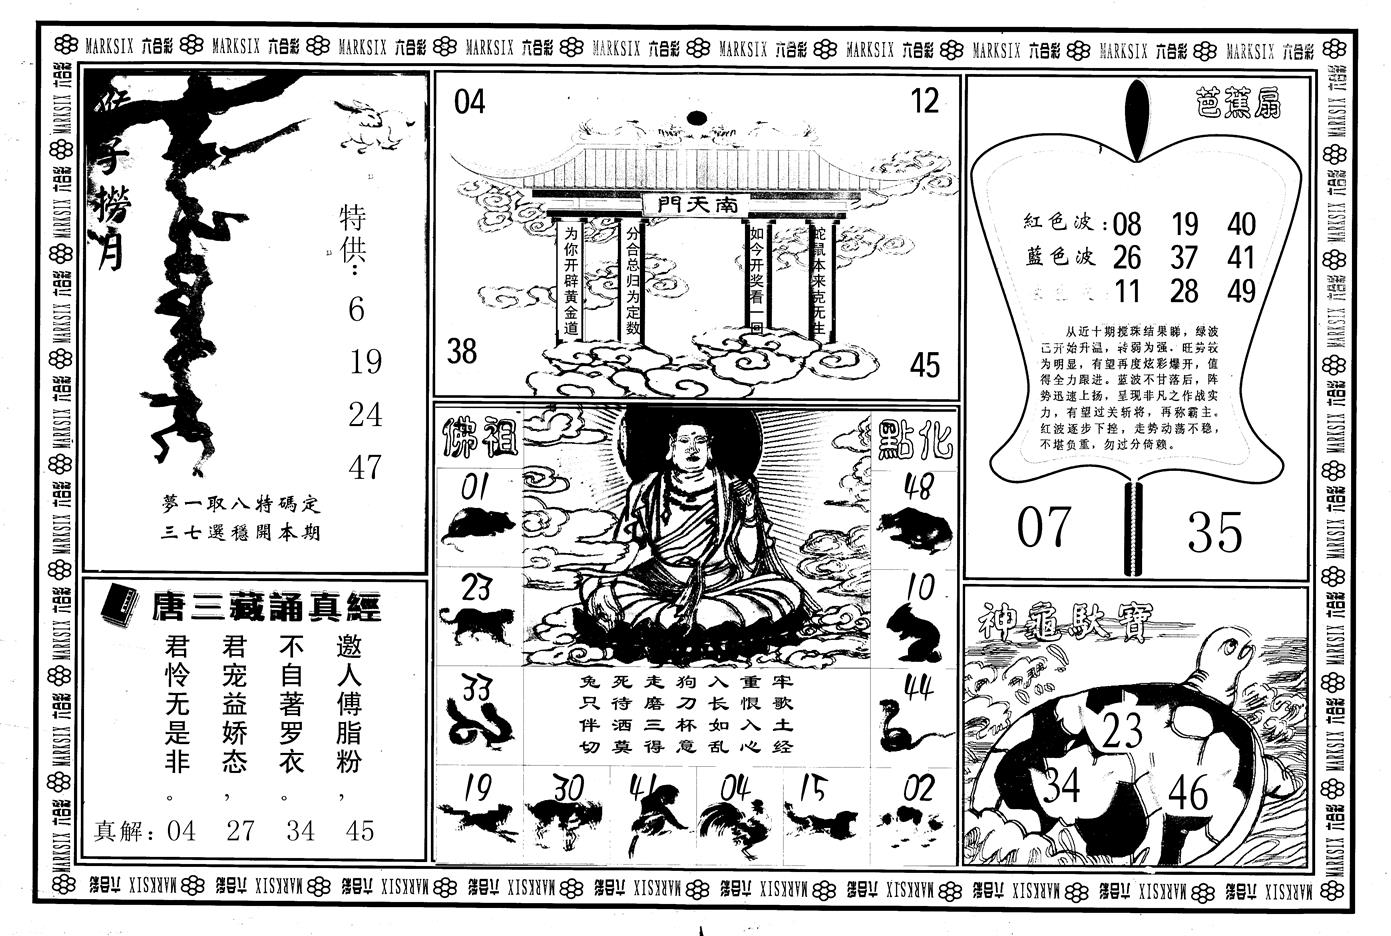 MARKSIX 六合彩 MARKSIX 六合彩 MARKSIX 六合彩 MARKSIX 六合彩 MARKSIX 六合彩 MARKSIX 六合彩 MARKSIX 六合彩 MARKSIX 六合彩 MARKSIX 六合彩 MARKSIX 六合彩
猴子撈月
特供：
6
19
24
47
夢一取八特碼定
三七選穩開本期
唐三藏誦真經
邀人傅脂粉，
不自著罗衣。
君宠益娇态，
君怜无是非。
真解：04 27 34 45
04
12
門天南
蛇鼠本来克无生
如今开奖看一回
分合总归为定数
为你开辟黄金道
38
45
佛祖
點化
01
48
23
10
33
44
兔死走狗入重牢
只待磨刀长恨歌
伴洒三杯如入土
切莫得意乱心经
19
30
41
04
15
02
芭蕉扇
紅色波：08 19 40
藍色波 26 37 41
11 28 49
从近十期搅珠结果睇，绿波
已开始升温，转弱为强。旺势较
为明显，有望再度炫彩爆开，值
得全力跟进。蓝波不甘落后，阵
势迅速上扬，呈现非凡之作战实
力，有望过关斩将，再称霸主。
红波逐步下挫，走势动荡不稳，
不堪负重，勿过分倚赖。
07
35
神龜馱寶
23
34
46
MARKSIX 六合彩 MARKSIX 六合彩 MARKSIX 六合彩 MARKSIX 六合彩 MARKSIX 六合彩 MARKSIX 六合彩 MARKSIX 六合彩 MARKSIX 六合彩 MARKSIX 六合彩 MARKSIX 六合彩